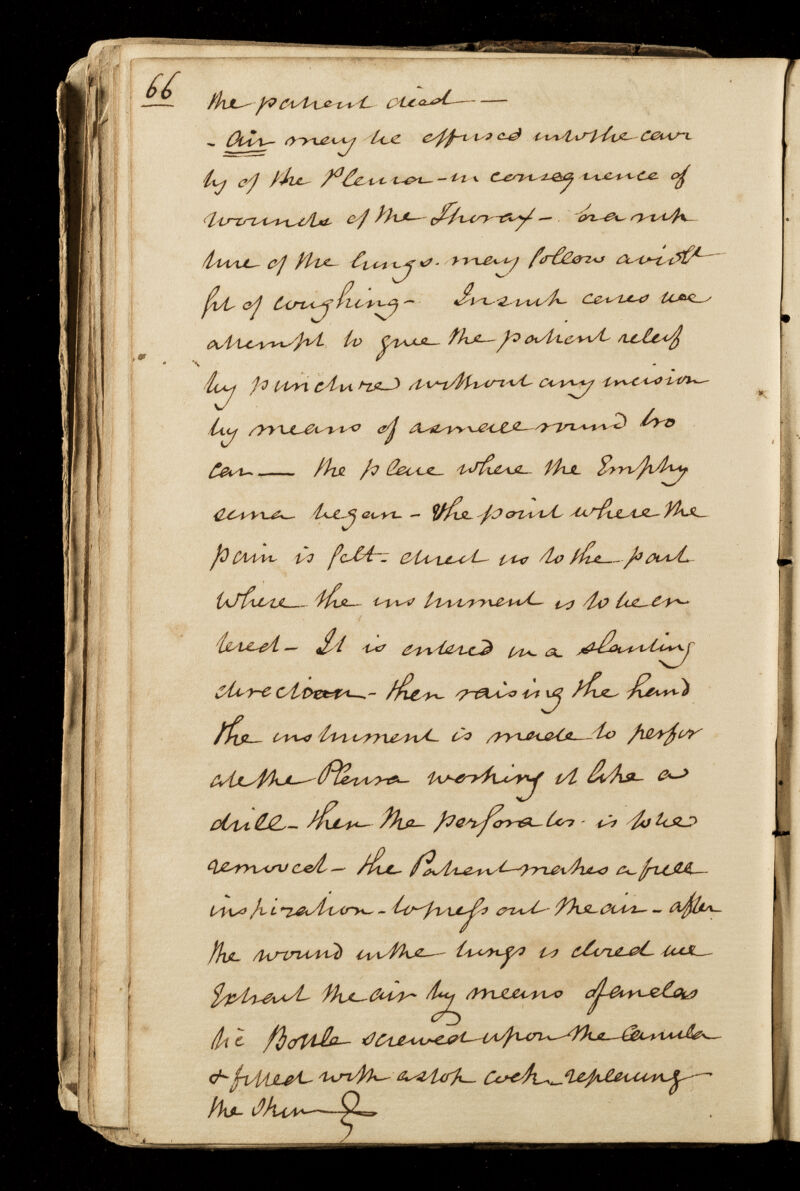 66
the patient died —
- Air may be effused into the cavi
ty of the Pleura - in consequence of
wounds of the Thorax - or a rup
ture of the lungs. may follow a violt
fit of coughing - In such cases we
attempt to give the patient releif
by puncture without any incision
by means of a small round tro
car — the place where the Emphy
sema began - the point where the
pain is felt - direct us to the part
where the instrument is to be en
tered - It is entered in a slanting
direction - then raising the hand
the instrument is made to perfor
ate the Pleura working it like a
drill - then the perforator is to be
removed - the Patient makes a full
inspiration - to press out the air - after
the wound in the lungs is closed we
Extract the air by means of an elas
tic Bottle screwed upon the Canula
& fitted with a stop cock - replacing
the skin